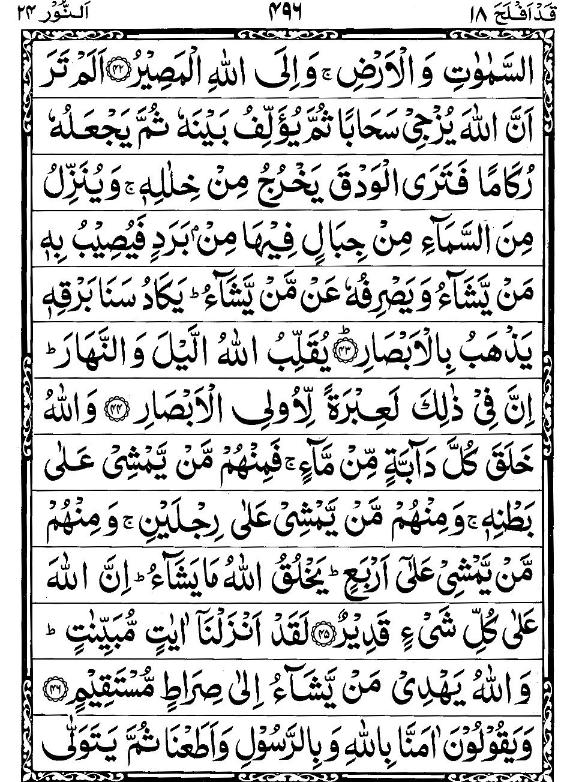 قَدْ اَفْلَحَ ۱۸ ۴۹۶ اَلنُّوْر ۲۴
السَّمٰوٰتِ وَالْاَرْضِ ۚ وَاِلَى اللّٰهِ الْمَصِيْرُ ﴿۴۲﴾ اَلَمْ تَرَ
اَنَّ اللّٰهَ يُزْجِىْ سَحَابًا ثُمَّ يُؤَلِّفُ بَيْنَهٗ ثُمَّ يَجْعَلُهٗ
رُكَامًا فَتَرَى الْوَدْقَ يَخْرُجُ مِنْ خِلٰلِهٖ ۚ وَيُنَزِّلُ
مِنَ السَّمَآءِ مِنْ جِبَالٍ فِيْهَا مِنْۢ بَرَدٍ فَيُصِيْبُ بِهٖ
مَنْ يَّشَآءُ وَيَصْرِفُهٗ عَنْ مَّنْ يَّشَآءُ ؕ يَكَادُ سَنَا بَرْقِهٖ
يَذْهَبُ بِالْاَبْصَارِ ؕ ﴿۴۳﴾ يُقَلِّبُ اللّٰهُ الَّيْلَ وَالنَّهَارَ ؕ
اِنَّ فِىْ ذٰلِكَ لَعِبْرَةً لِّاُولِى الْاَبْصَارِ ﴿۴۴﴾ وَاللّٰهُ
خَلَقَ كُلَّ دَآبَّةٍ مِّنْ مَّآءٍ ۚ فَمِنْهُمْ مَّنْ يَّمْشِىْ عَلٰى
بَطْنِهٖ ۚ وَمِنْهُمْ مَّنْ يَّمْشِىْ عَلٰى رِجْلَيْنِ ۚ وَمِنْهُمْ
مَّنْ يَّمْشِىْ عَلٰٓى اَرْبَعٍ ؕ يَخْلُقُ اللّٰهُ مَا يَشَآءُ ؕ اِنَّ اللّٰهَ
عَلٰى كُلِّ شَىْءٍ قَدِيْرٌ ﴿۴۵﴾ لَقَدْ اَنْزَلْنَاۤ اٰيٰتٍ مُّبَيِّنٰتٍ ؕ
وَاللّٰهُ يَهْدِىْ مَنْ يَّشَآءُ اِلٰى صِرَاطٍ مُّسْتَقِيْمٍ ﴿۴۶﴾
وَيَقُوْلُوْنَ اٰمَنَّا بِاللّٰهِ وَبِالرَّسُوْلِ وَاَطَعْنَا ثُمَّ يَتَوَلّٰى